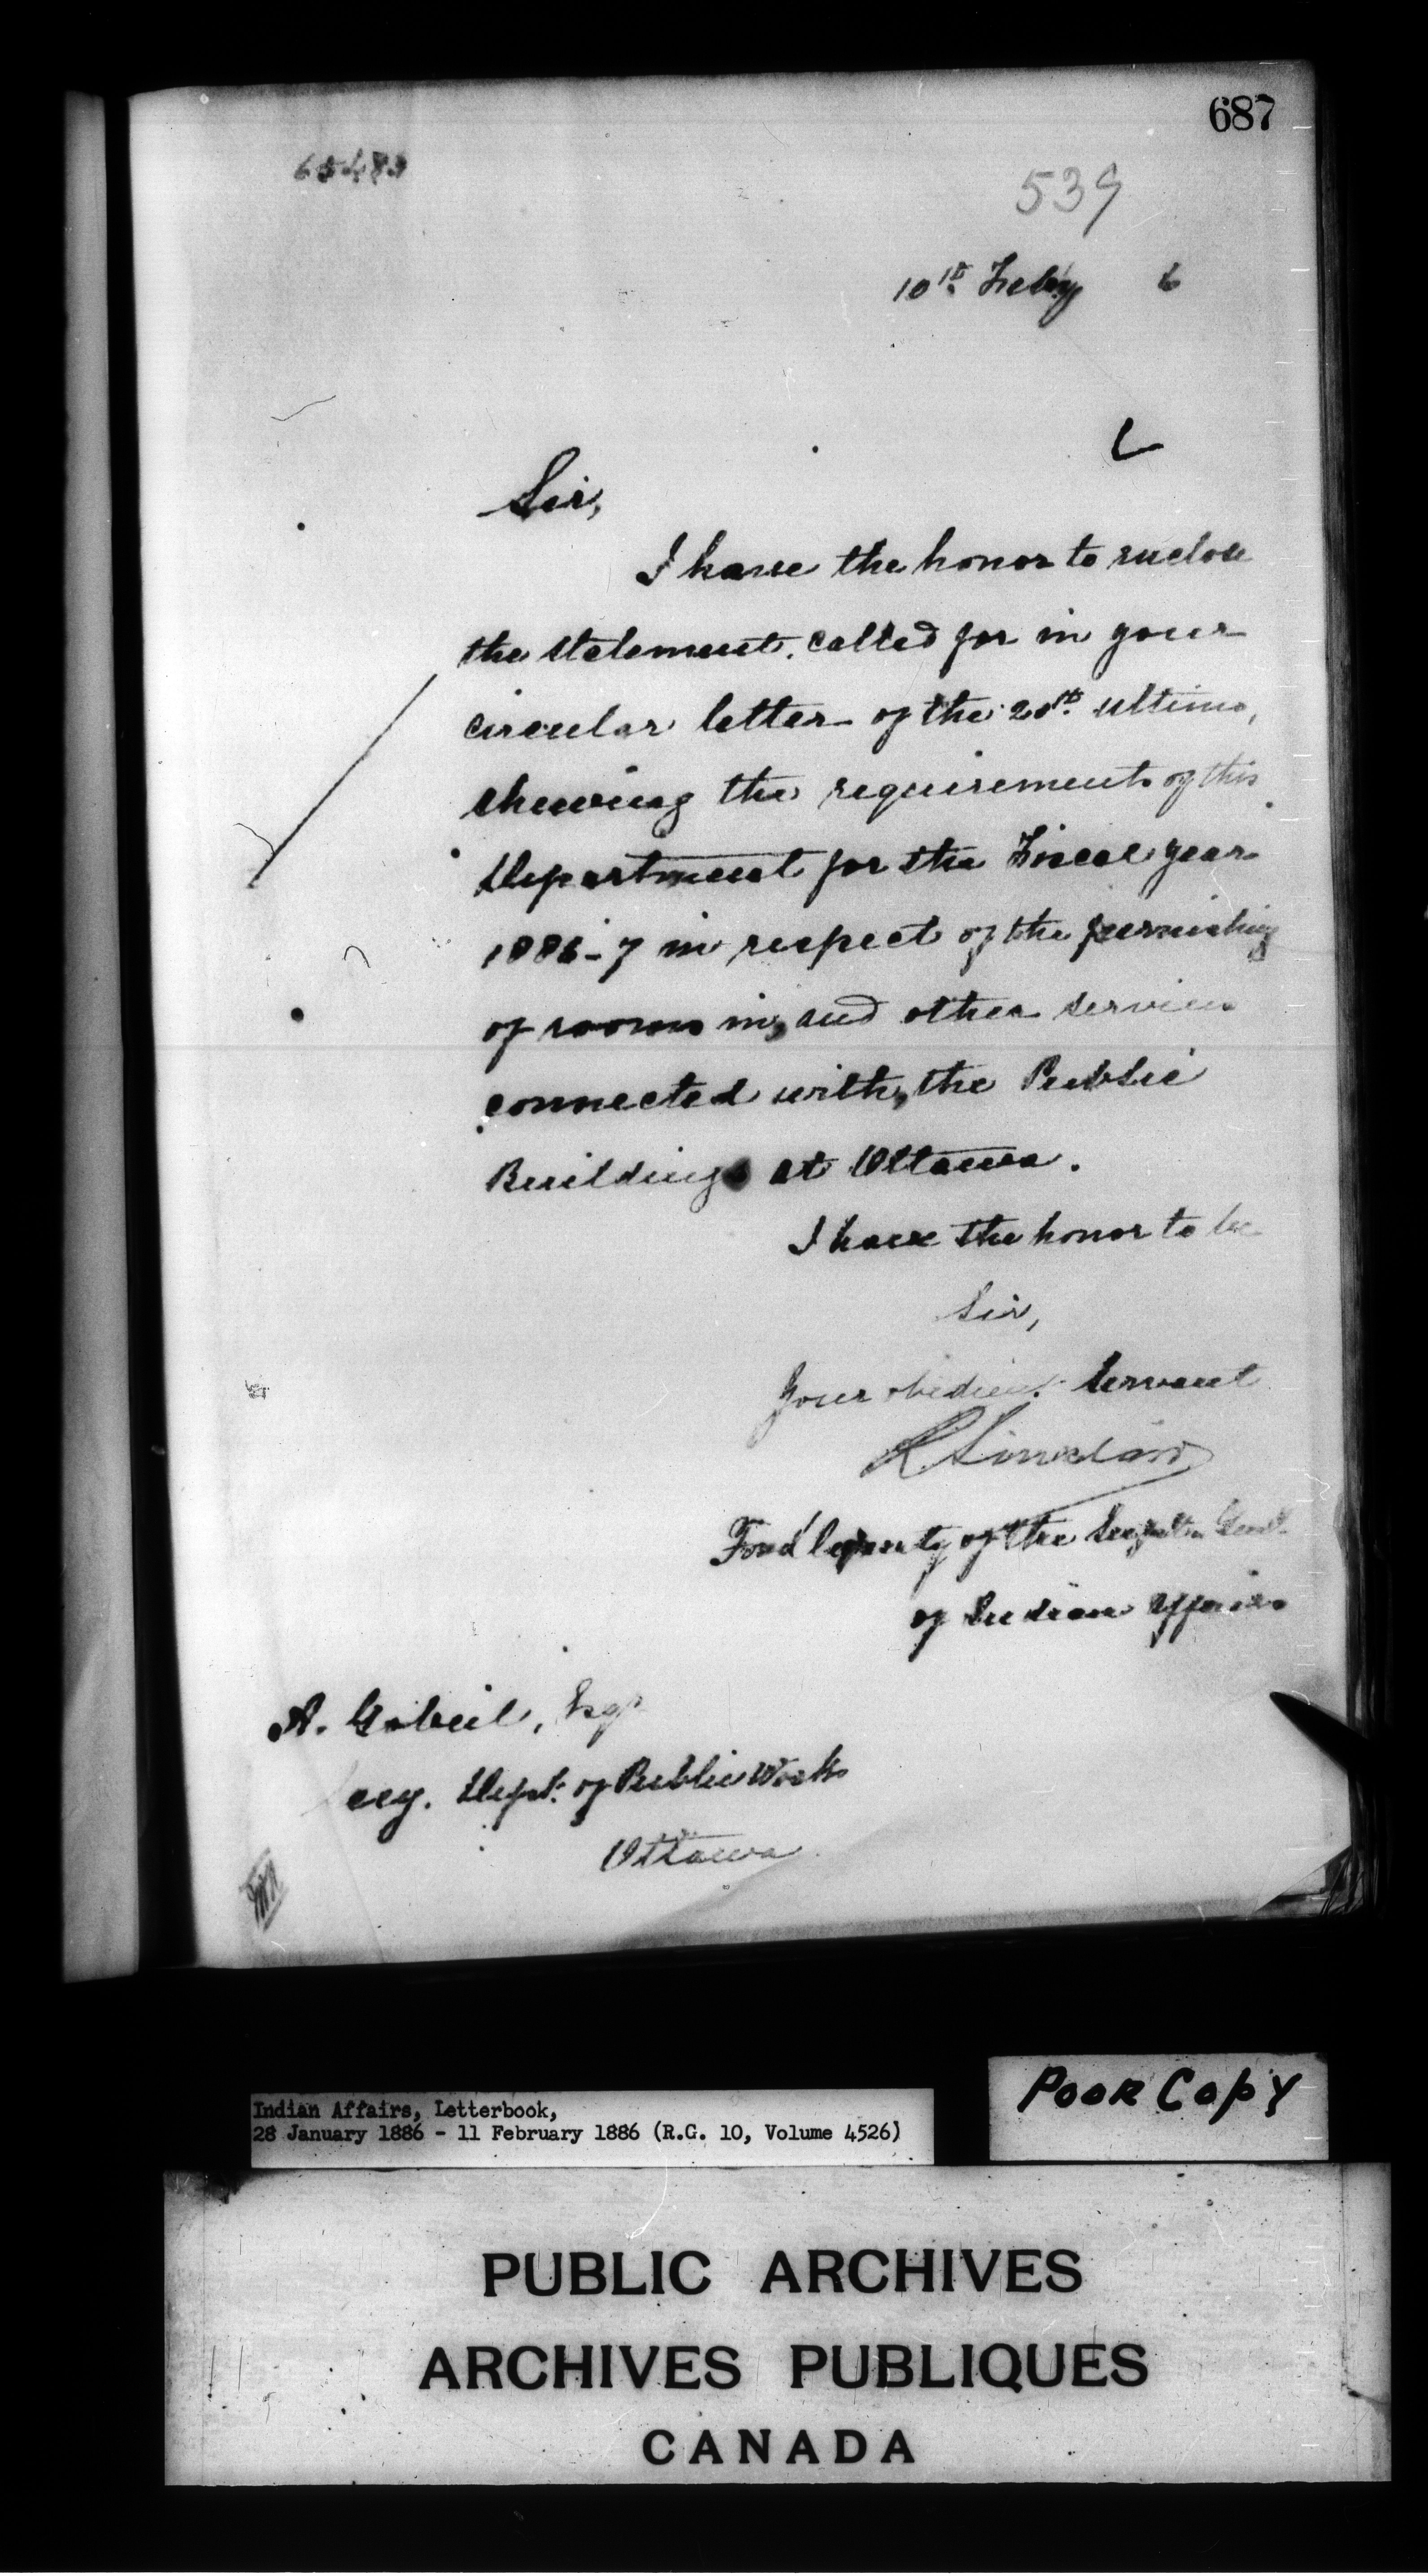 687
539
10th Feby 6
Sir,
I have the honor to enclose
the statement called for in your
circular letter of the 20th ultimo,
shewing the requirements of this
Department for the Fiscal year
1886-7 in respect of the furnishing
of rooms in, and other services
connected with, the Public
Buildings at Ottawa.
I have the honor to be
Sir,
Your obedient Servant
R Sinclair
For d deputy of the Supt Genl
of Indian Affairs
A. Gobeil, Esqr
Secy. Dept. of Public Works
Ottawa
Indian Affairs, Letterbook,
28 January 1886 - 11 February 1886 (R.G. 10, Volume 4526)
POOR COPY
PUBLIC ARCHIVES
ARCHIVES PUBLIQUES
CANADA